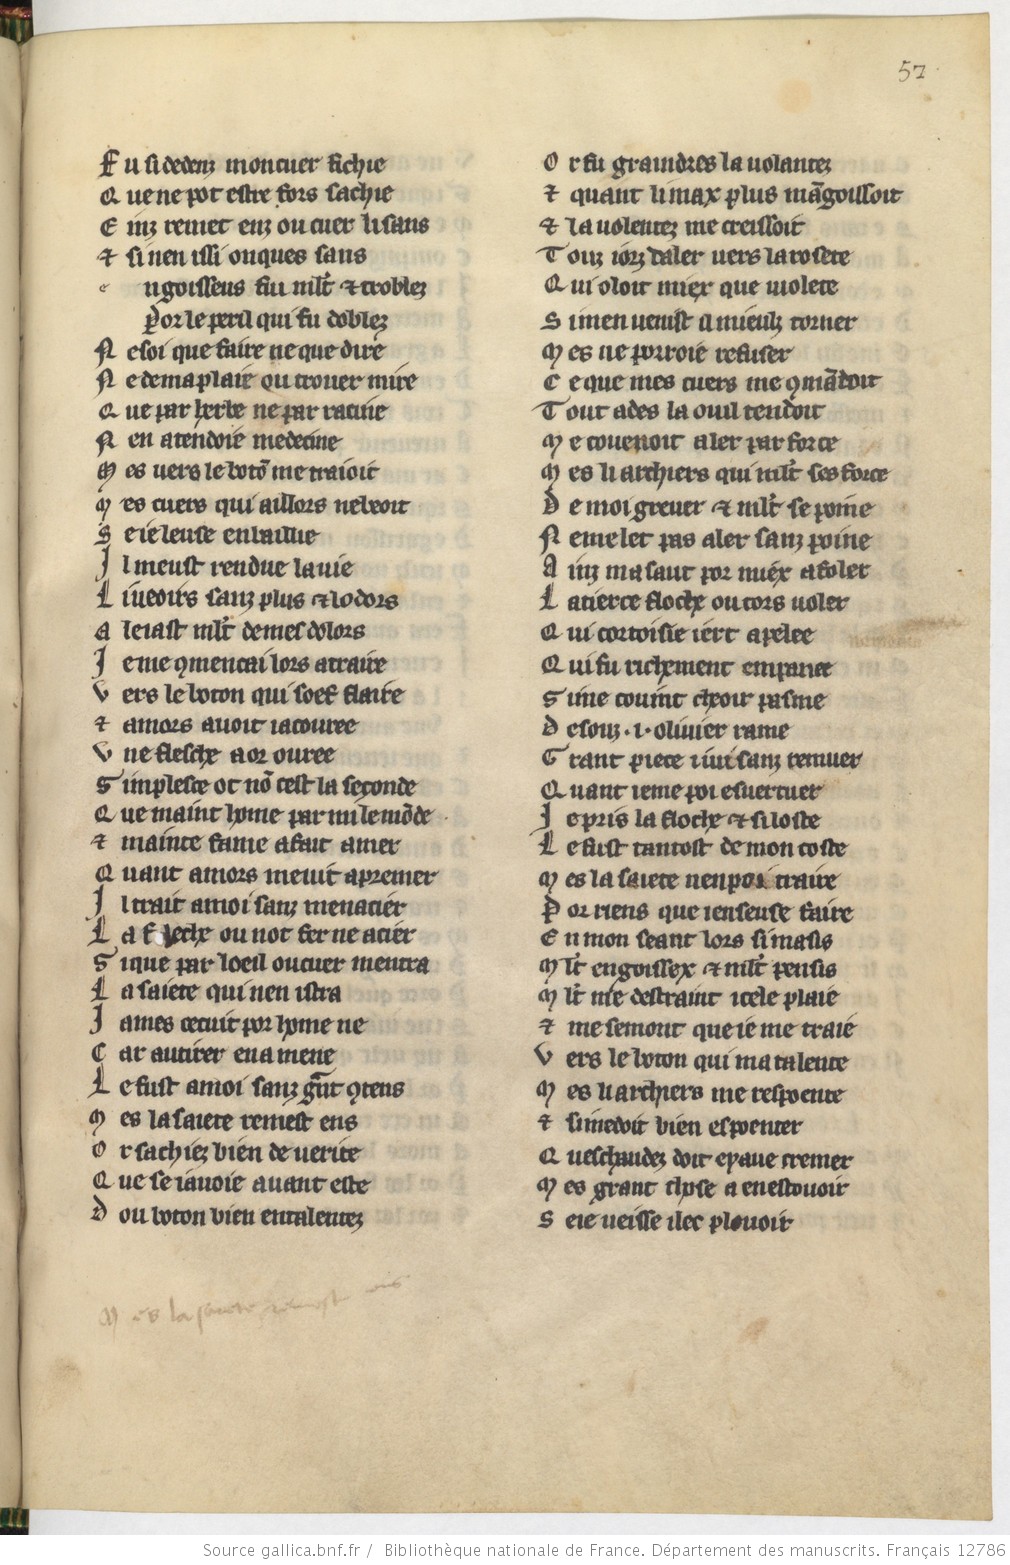 57
F u si dedenz mon cuer fichie
Q ue ne pot estre fors sachie
E inz remet enz ou cuer li sans
⁊ si nen issi onques sans
e ngoisseus fui mlt̃ ⁊ troblez
P̱or le peril qui fu doblez
N e soi que faire ne que dire
N e de ma plaie ou trouer mire
Q ue par herbe ne par racine
N en atendoie medecine
M es vers le botõ me traioit
M es cuers qui aillors ne beoit
S e ie leusse en baillie
J l meust rendue la vie
L i ueoirs sanz plus ⁊ lodors
A leiast mlt̃ de mes dolors
J e me ꝯmencai lors a traire
V ers le boton qui soef flaire
⁊ amors auoit ia couree
V ne flesche a or ouree
S implesce ot nõ cest la seconde
Q ue maint home par mi le mõde
⁊ mainte fame a fait amer
Q uant amors me uit apremer
J l trait a moi sanz menacier
L a fleche ou not fer ne acier
S i que par loeil ou cuer mentra
L a saiete qui nen istra
J ames ce cuit por home ne
C ar au tirer en amene
L e fust a moi sanz g̃nt ꝯtens
M es la saiete remest ens
O r sachiez bien de uerite
Q ue se iauoie auant este
D ou boton bien entalentez
M es la saiete remest ens
O r fu graindres la uolantez
⁊ quant li max plus mãgoissoit
⁊ la uolentez me creissoit
T ouz iorz daler uers la rosete
Q ui oloit miex que uiolete
S i men uenist il mieulz torner
M es ne porroie refuser
C e que mes cuers me ꝯmãdoit
T out ades la ou il tendoit
M e couenoit aler par force
M es li archiers qui mlt̃ sesforce
D e moi greuer ⁊ mlt̃ se poine
N e me let pas aler sanz poine
A inz ma fait por miex afoler
L a tierce floche ou cors uoler
Q ui cortoisie iert apelee
Q ui fu richement emparee
S i me couint cheoir pasme
D esouz .i. oliuier rame
G rant piece i iui sanz remuer
Q uant ie me poi esuertuer
J e pris la floche ⁊ si loste
L e fust tantost de mon coste
M es la saiete nen poi traire
P̱ or riens que ien seusse faire
E n mon seant lors si masis
M lt̃ engoissex ⁊ mlt̃ pensis
M lt̃ me destraint icele plaie
⁊ me semont que ie me traie
V ers le boton qui ma talente
M es li archiers me respoente
⁊ si me doit bien espoenter
Q ueschaudez doit eyaue cremer
M es grant chose a en estouoir
S e ie ueisse ilec plouoir
Source gallica.bnf.fr / Bibliothèque nationale de France. Département des manuscrits. Français 12786